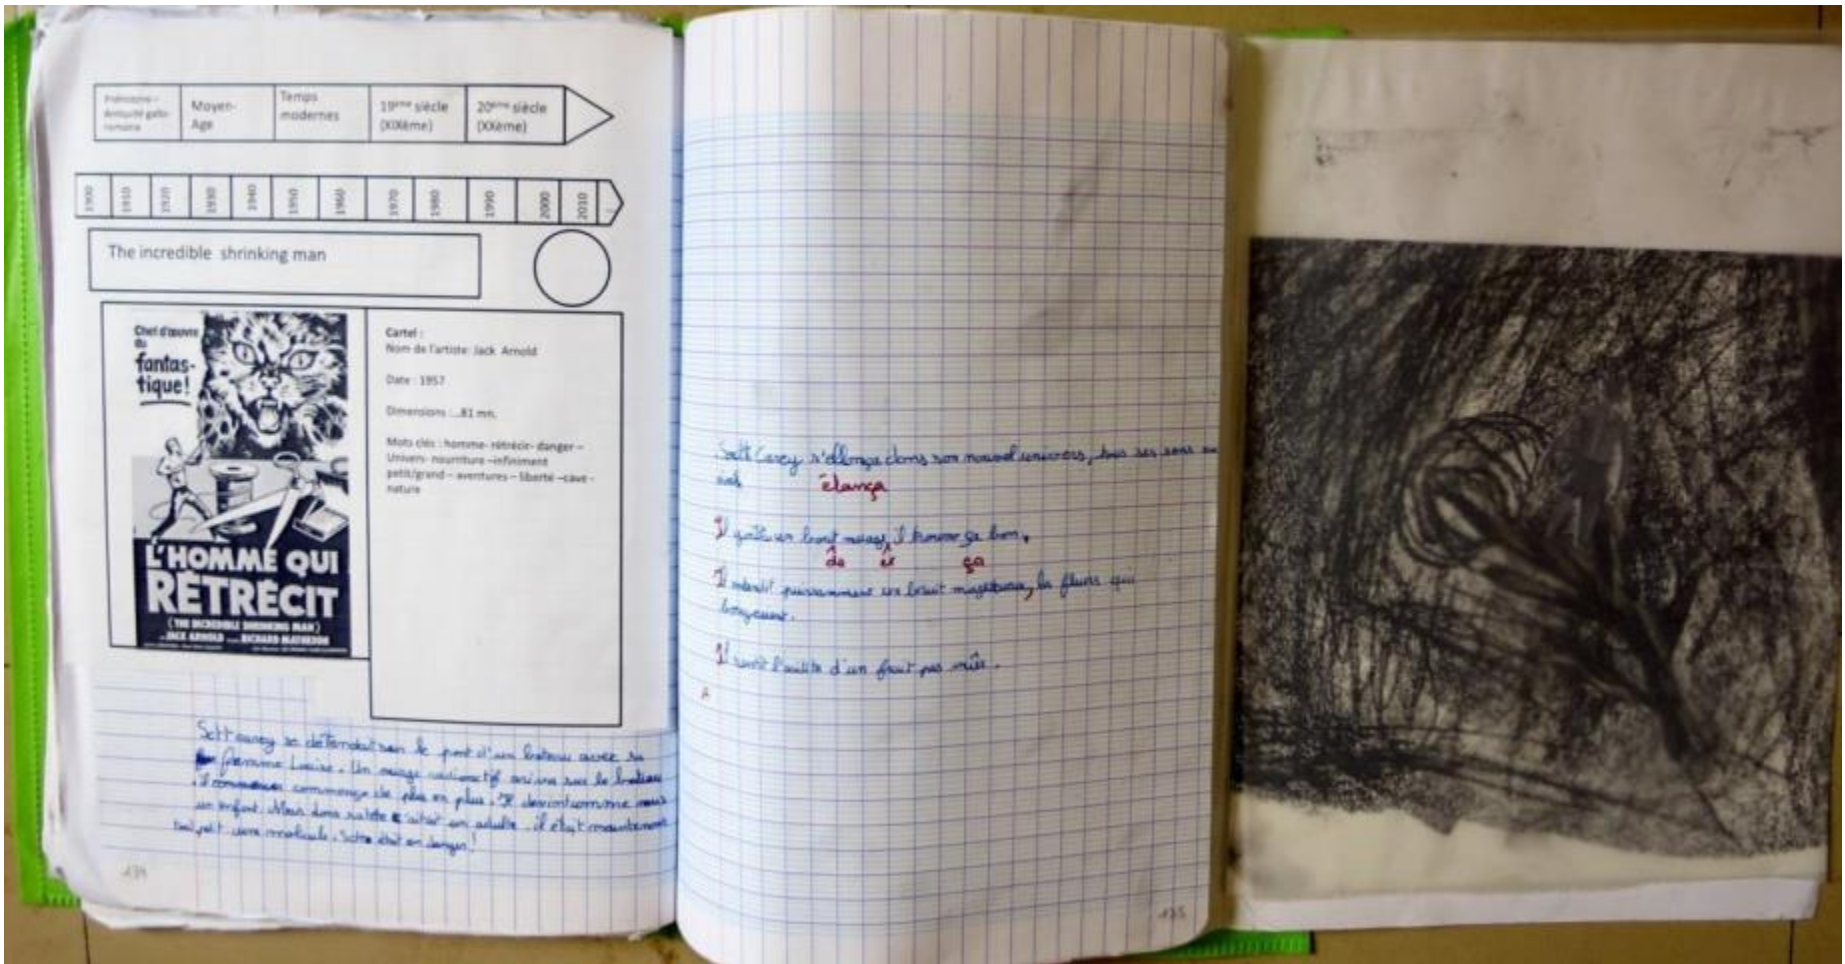 Préhistoire – Antiquité gallo-romaine
Moyen-Age
Temps modernes
19ème siècle (XIXème)
20ème siècle (XXème)
1900 1910 1920 1930 1940 1950 1960 1970 1980 1990 2000 2010
The incredible shrinking man
Chef d'œuvre
du
fantas-
tique!
L'HOMME QUI
RÉTRÉCIT
(THE INCREDIBLE SHRINKING MAN)
JACK ARNOLD RICHARD MATHESON
Cartel :
Nom de l'artiste: Jack Arnold
Date : 1957
Dimensions :...81 mn.
Mots clés : homme- rétrécir- danger –
Univers- nourriture –infiniment
petit/grand – aventures – liberté –cave -
nature
carey se le pont d'un bateau avec sa
femme Louise. Un nuage radioactif sur le bateau
il commença de plus en plus. Il
un enfant. Mais dans sa tête c'était un adulte. il était maintenant
petit une molécule. était en danger!
134
Carey s' dans son nouvel univers, ses sens en
élança
Il un il trouve ça bon.
de ça
Il puissamment un bruit la fleurs qui
Il d'un fruit pas mûr.
135